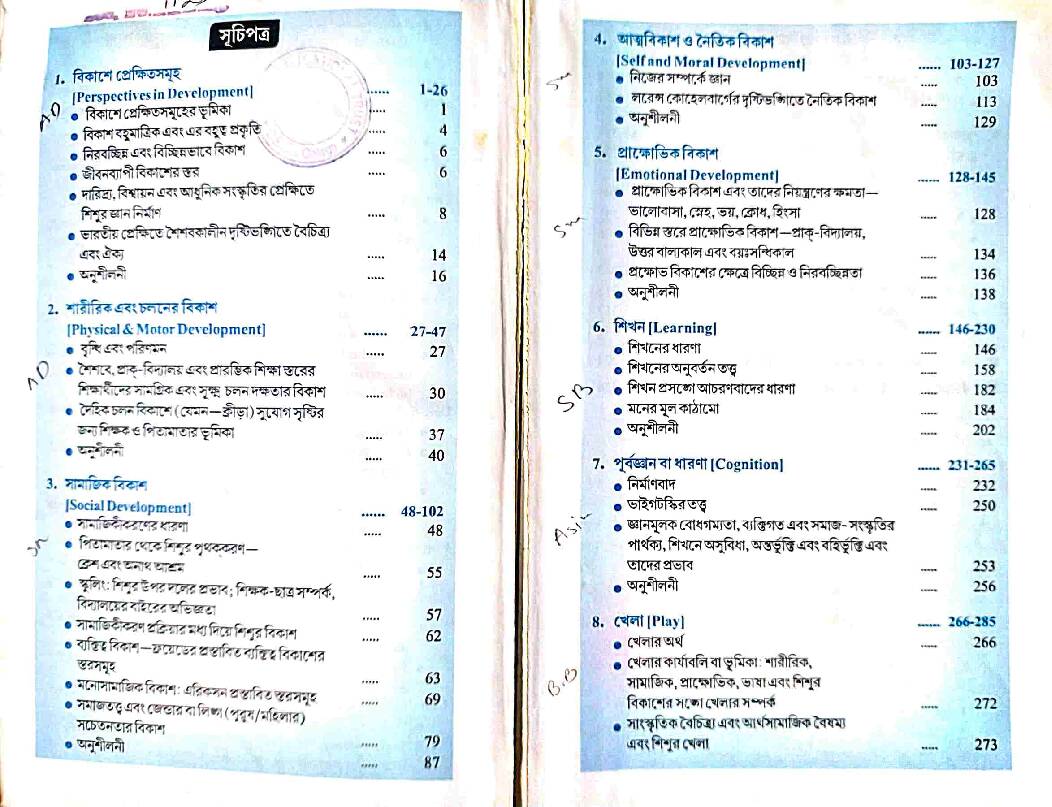 সূচিপত্র
1. বিকাশে প্রেক্ষিতসমূহ
[Perspectives in Development] ...... 1-26
● বিকাশে প্রেক্ষিতসমূহের ভূমিকা ..... 1
● বিকাশ বহুমাত্রিক এবং এর বহুত্ব প্রকৃতি ..... 4
● নিরবচ্ছিন্ন এবং বিচ্ছিন্নভাবে বিকাশ ..... 6
● জীবনব্যাপী বিকাশের স্তর ..... 6
● দারিদ্র্য, বিশ্বায়ন এবং আধুনিক সংস্কৃতির প্রেক্ষিতে
শিশুর জ্ঞান নির্মাণ ..... 8
● ভারতীয় প্রেক্ষিতে শৈশবকালীন দৃষ্টিভঙ্গিতে বৈচিত্র্য
এবং ঐক্য ..... 14
● অনুশীলনী ..... 16
AD
2. শারীরিক এবং চলনের বিকাশ
[Physical & Motor Development] ...... 27-47
● বৃদ্ধি এবং পরিণমন ..... 27
● শৈশবে, প্রাক্-বিদ্যালয় এবং প্রারম্ভিক শিক্ষা স্তরের
শিক্ষার্থীদের সামগ্রিক এবং সূক্ষ্ম চলন দক্ষতার বিকাশ ..... 30
● দৈহিক চলন বিকাশে (যেমন—ক্রীড়া) সুযোগ সৃষ্টির
জন্য শিক্ষক ও পিতামাতার ভূমিকা ..... 37
● অনুশীলনী ..... 40
AD
3. সামাজিক বিকাশ
[Social Development] ...... 48-102
● সামাজিকীকরণের ধারণা ..... 48
● পিতামাতার থেকে শিশুর পৃথককরণ—
ক্রেশ এবং অনাথ আশ্রম ..... 55
● স্কুলিং: শিশুর উপর দলের প্রভাব; শিক্ষক-ছাত্র সম্পর্ক,
বিদ্যালয়ের বাইরের অভিজ্ঞতা ..... 57
● সামাজিকীকরণ প্রক্রিয়ার মধ্য দিয়ে শিশুর বিকাশ ..... 62
● ব্যক্তিত্ব বিকাশ—ফ্রয়েডের প্রস্তাবিত ব্যক্তিত্ব বিকাশের
স্তরসমূহ ..... 63
● মনোসামাজিক বিকাশ: এরিকসন প্রস্তাবিত স্তরসমূহ ..... 69
● সমাজতত্ত্ব এবং জেন্ডার বা লিঙ্গ (পুরুষ/মহিলার)
সচেতনতার বিকাশ ..... 79
● অনুশীলনী ..... 87
4. আত্মবিকাশ ও নৈতিক বিকাশ
[Self and Moral Development] ...... 103-127
● নিজের সম্পর্কে জ্ঞান ..... 103
● লরেন্স কোহেলবার্গের দৃষ্টিভঙ্গিতে নৈতিক বিকাশ ..... 113
● অনুশীলনী ..... 129
5. প্রাক্ষোভিক বিকাশ
[Emotional Development] ...... 128-145
● প্রাক্ষোভিক বিকাশ এবং তাদের নিয়ন্ত্রণের ক্ষমতা—
ভালোবাসা, স্নেহ, ভয়, ক্রোধ, হিংসা ..... 128
● বিভিন্ন স্তরে প্রাক্ষোভিক বিকাশ—প্রাক্-বিদ্যালয়,
উত্তর বাল্যকাল এবং বয়ঃসন্ধিকাল ..... 134
● প্রক্ষোভ বিকাশের ক্ষেত্রে বিচ্ছিন্ন ও নিরবচ্ছিন্নতা ..... 136
● অনুশীলনী ..... 138
6. শিখন [Learning] ...... 146-230
● শিখনের ধারণা ..... 146
● শিখনের অনুবর্তন তত্ত্ব ..... 158
● শিখন প্রসঙ্গে আচরণবাদের ধারণা ..... 182
● মনের মূল কাঠামো ..... 184
● অনুশীলনী ..... 202
SB
7. পূর্বজ্ঞান বা ধারণা [Cognition] ...... 231-265
● নির্মাণবাদ ..... 232
● ভাইগটস্কির তত্ত্ব ..... 250
● জ্ঞানমূলক বোধগম্যতা, ব্যক্তিগত এবং সমাজ-সংস্কৃতির
পার্থক্য, শিখনে অসুবিধা, অন্তর্ভুক্তি এবং বহির্ভুক্তি এবং
তাদের প্রভাব ..... 253
● অনুশীলনী ..... 256
8. খেলা [Play] ...... 266-285
● খেলার অর্থ ..... 266
● খেলার কার্যাবলি বা ভূমিকা: শারীরিক,
সামাজিক, প্রাক্ষোভিক, ভাষা এবং শিশুর
বিকাশের সঙ্গে খেলার সম্পর্ক ..... 272
● সাংস্কৃতিক বৈচিত্র্য এবং আর্থসামাজিক বৈষম্য
এবং শিশুর খেলা ..... 273
B.B